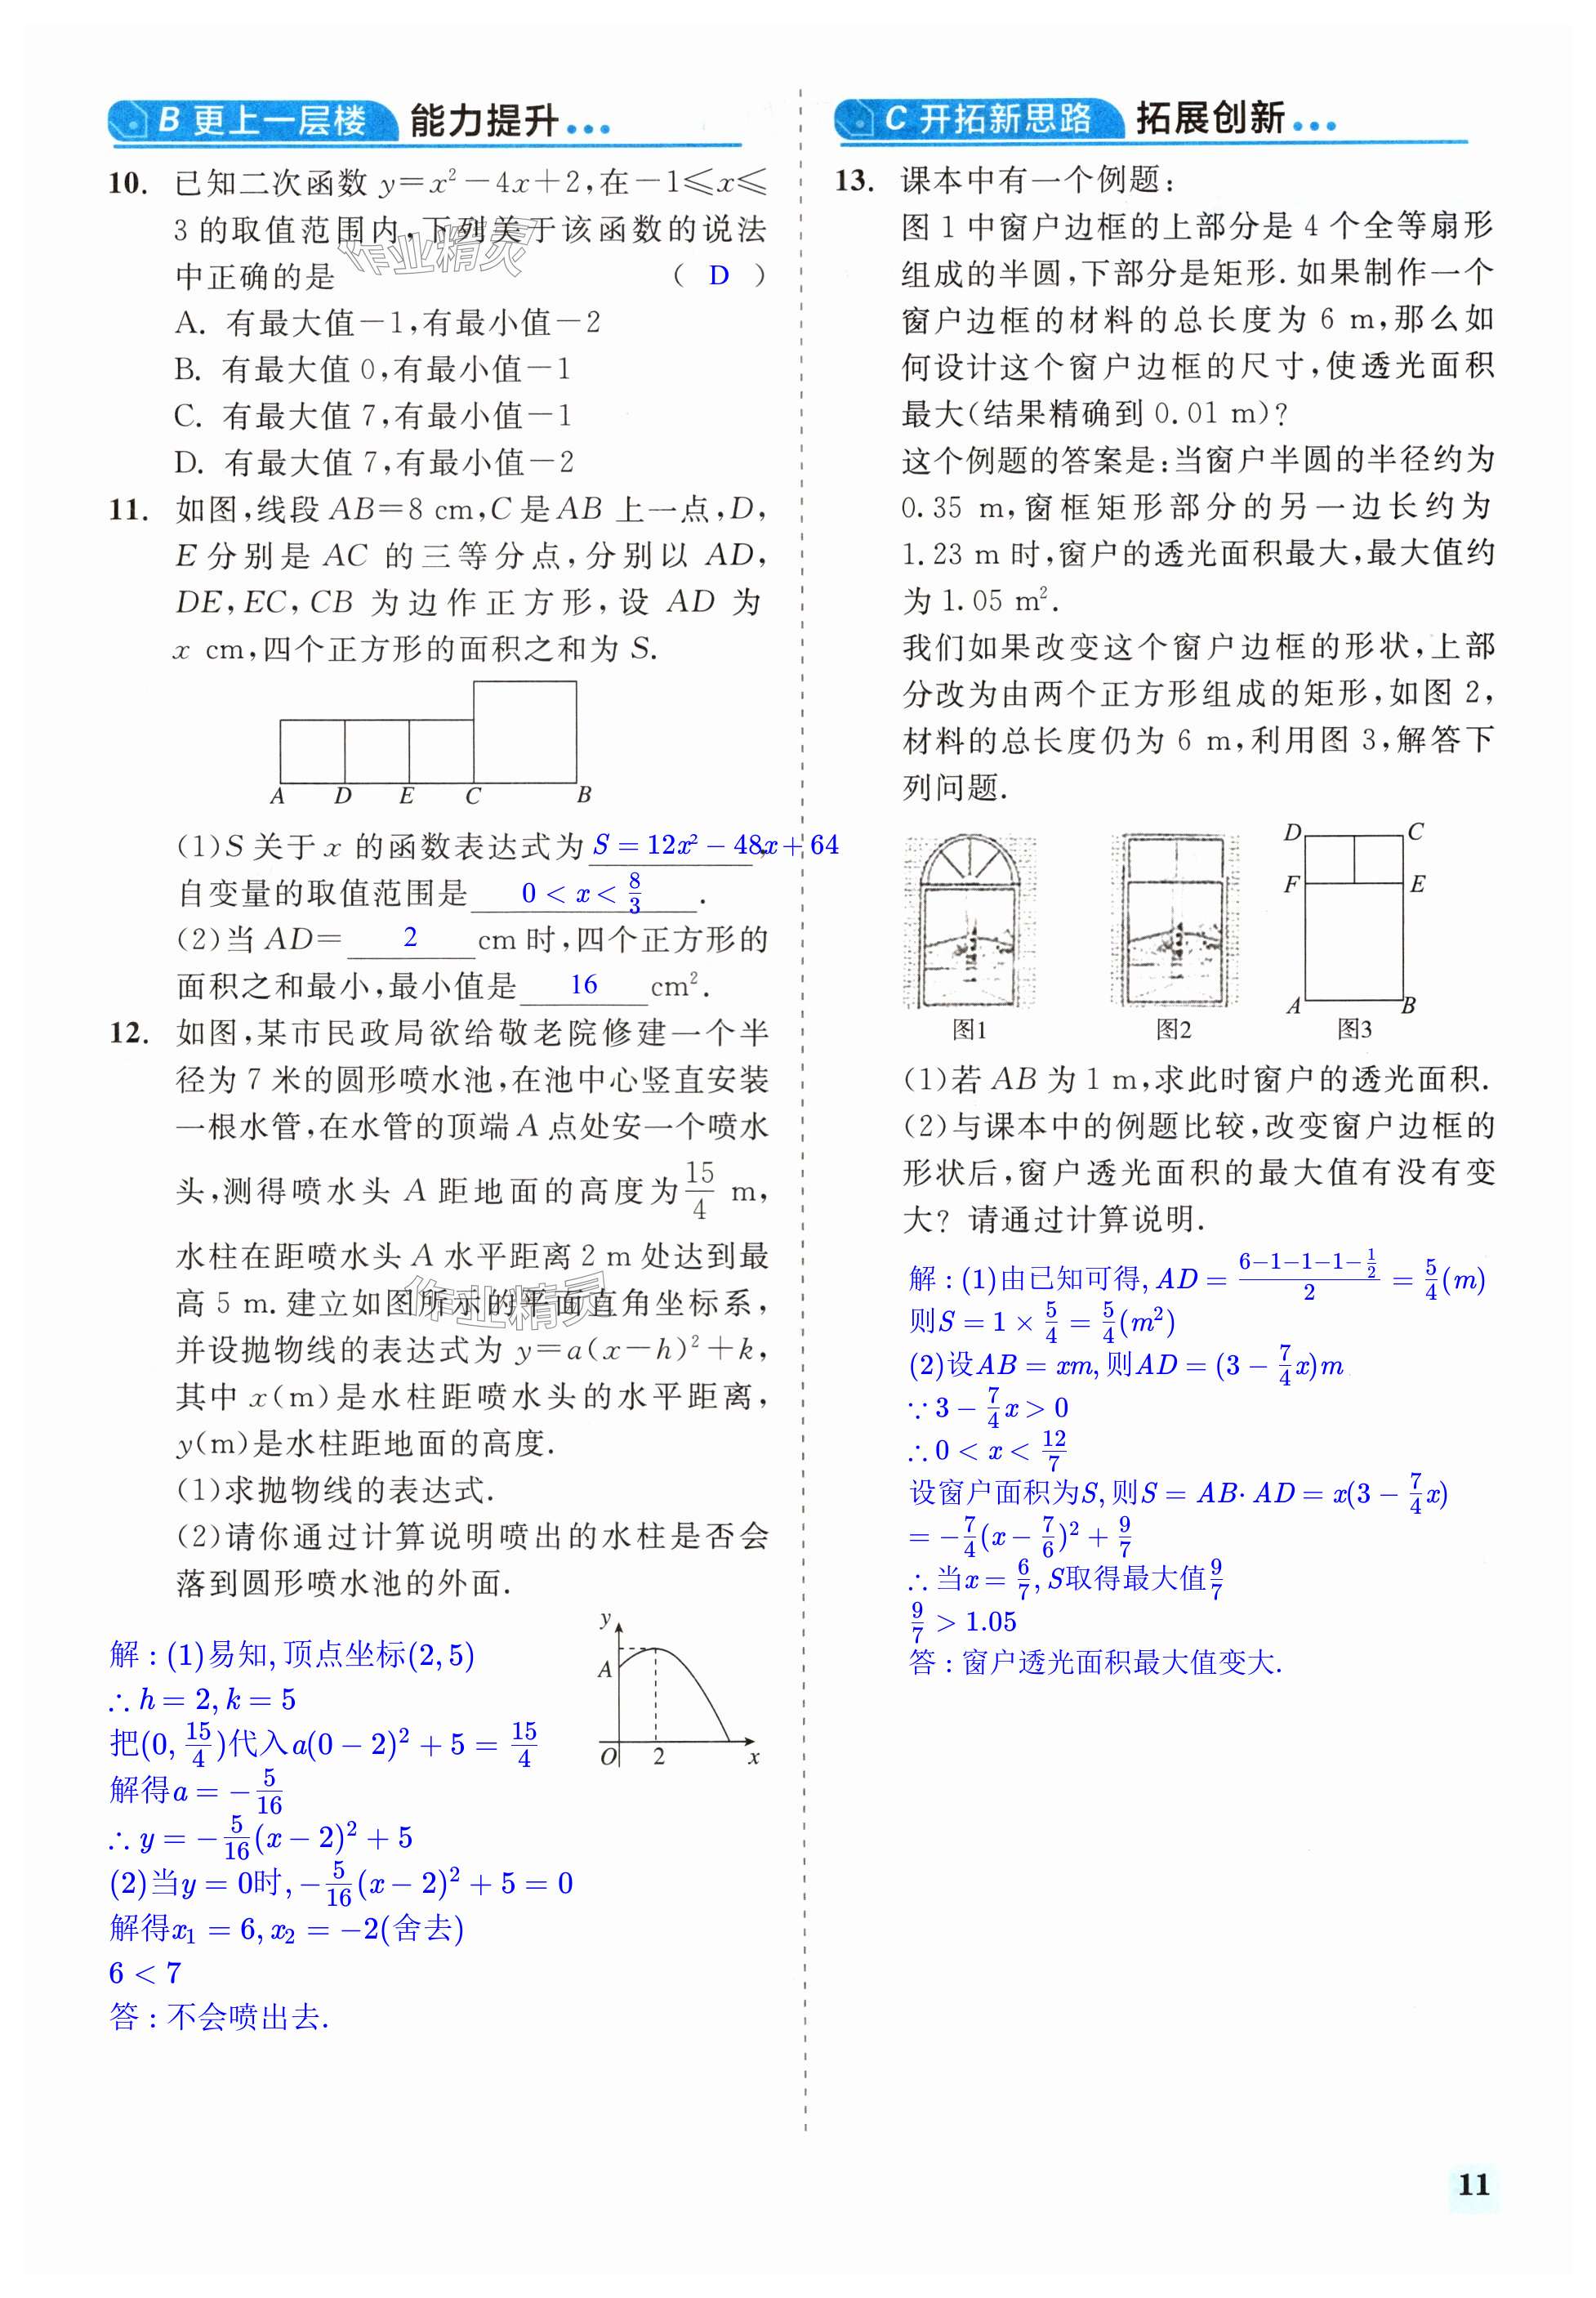 B 更上一层楼 能力提升...
10. 已知二次函数 y=x²-4x+2,在-1≤x≤
3 的取值范围内,下列关于该函数的说法
中正确的是 ( D )
A. 有最大值-1,有最小值-2
B. 有最大值 0,有最小值-1
C. 有最大值 7,有最小值-1
D. 有最大值 7,有最小值-2
11. 如图,线段 AB=8 cm,C 是 AB 上一点,D,
E 分别是 AC 的三等分点,分别以 AD,
DE,EC,CB 为边作正方形,设 AD 为
x cm,四个正方形的面积之和为 S.
A D E C B
(1)S 关于 x 的函数表达式为 S = 12x² - 48x + 64 ,
自变量的取值范围是 0 < x < 8/3 .
(2)当 AD= 2 cm 时,四个正方形的
面积之和最小,最小值是 16 cm².
12. 如图,某市民政局欲给敬老院修建一个半
径为 7 米的圆形喷水池,在池中心竖直安装
一根水管,在水管的顶端 A 点处安一个喷水
头,测得喷水头 A 距地面的高度为 15/4 m,
水柱在距喷水头 A 水平距离 2 m 处达到最
高 5 m.建立如图所示的平面直角坐标系,
并设抛物线的表达式为 y=a(x-h)²+k,
其中 x(m)是水柱距喷水头的水平距离,
y(m)是水柱距地面的高度.
(1)求抛物线的表达式.
(2)请你通过计算说明喷出的水柱是否会
落到圆形喷水池的外面.
y
A
O 2 x
解:(1)易知,顶点坐标(2,5)
∴h = 2,k = 5
把(0, 15/4)代入a(0 - 2)² + 5 = 15/4
解得a = -5/16
∴y = -5/16(x - 2)² + 5
(2)当y = 0时,-5/16(x - 2)² + 5 = 0
解得x₁ = 6,x₂ = -2(舍去)
6 < 7
答:不会喷出去.
作业精灵
作业精灵
C 开拓新思路 拓展创新...
13. 课本中有一个例题:
图 1 中窗户边框的上部分是 4 个全等扇形
组成的半圆,下部分是矩形.如果制作一个
窗户边框的材料的总长度为 6 m,那么如
何设计这个窗户边框的尺寸,使透光面积
最大(结果精确到 0.01 m)?
这个例题的答案是:当窗户半圆的半径约为
0.35 m,窗框矩形部分的另一边长约为
1.23 m 时,窗户的透光面积最大,最大值约
为 1.05 m².
我们如果改变这个窗户边框的形状,上部
分改为由两个正方形组成的矩形,如图 2,
材料的总长度仍为 6 m,利用图 3,解答下
列问题.
D C
F E
A B
图1 图2 图3
(1)若 AB 为 1 m,求此时窗户的透光面积.
(2)与课本中的例题比较,改变窗户边框的
形状后,窗户透光面积的最大值有没有变
大? 请通过计算说明.
解:(1)由已知可得,AD = (6-1-1-1-1/2)/2 = 5/4(m)
则S = 1 × 5/4 = 5/4(m²)
(2)设AB = xm,则AD = (3 - 7/4x)m
∵3 - 7/4x > 0
∴0 < x < 12/7
设窗户面积为S,则S = AB· AD = x(3 - 7/4x)
= -7/4(x - 7/6)² + 9/7
∴当x = 6/7, S取得最大值9/7
9/7 > 1.05
答:窗户透光面积最大值变大.
11